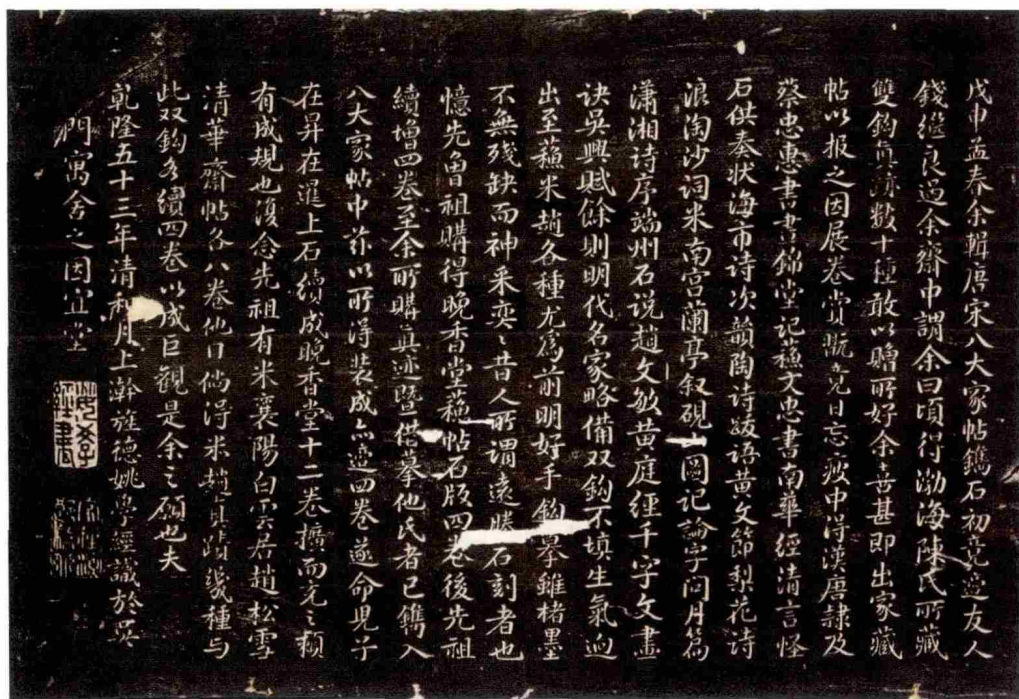 戊申孟春余輯唐宋八大家帖鐫石初竟適友人
錢繼良過余齋中謂余曰頃得渤海陳氏所藏
雙鈎真蹟數十種敢以贈所好余喜甚即出家藏
帖以报之因展卷賞甄竟日忘疲中得漢唐隸及
蔡忠惠書晝錦堂記蘓文忠書南華經清言怪
石供奏狀海市诗次韻陶诗跋語黄文節梨花诗
浪淘沙词米南宫蘭亭叙硯圖记論字问月篇
瀟湘诗序端州石说趙文敏黄庭經千字文畫
诀吳興賦餘则明代名家略備双鈎不填生氣迥
出至蘓米趙各種尤為前明好手鈎摹雖楮墨
不無殘缺而神采奕〻昔人所谓遠勝石刻者也
憶先曾祖購得晚香堂蘓帖石版四卷後先祖
續增四卷至余所購真迹暨借摹他氏者已鐫入
八大家帖中茲以所得裝成亦遂四卷遂命兒子
在昇在暹上石續成晚香堂十二卷擴而充之頼
有成規也復念先祖有米襄陽白雲居趙松雪
清華齋帖各八卷他日倘得米趙真蹟幾種与
此双鈎各續四卷以成巨觀是余之願也夫
乾隆五十三年清和月上澣旌德姚學經識於吳
門寓舍之因宜堂